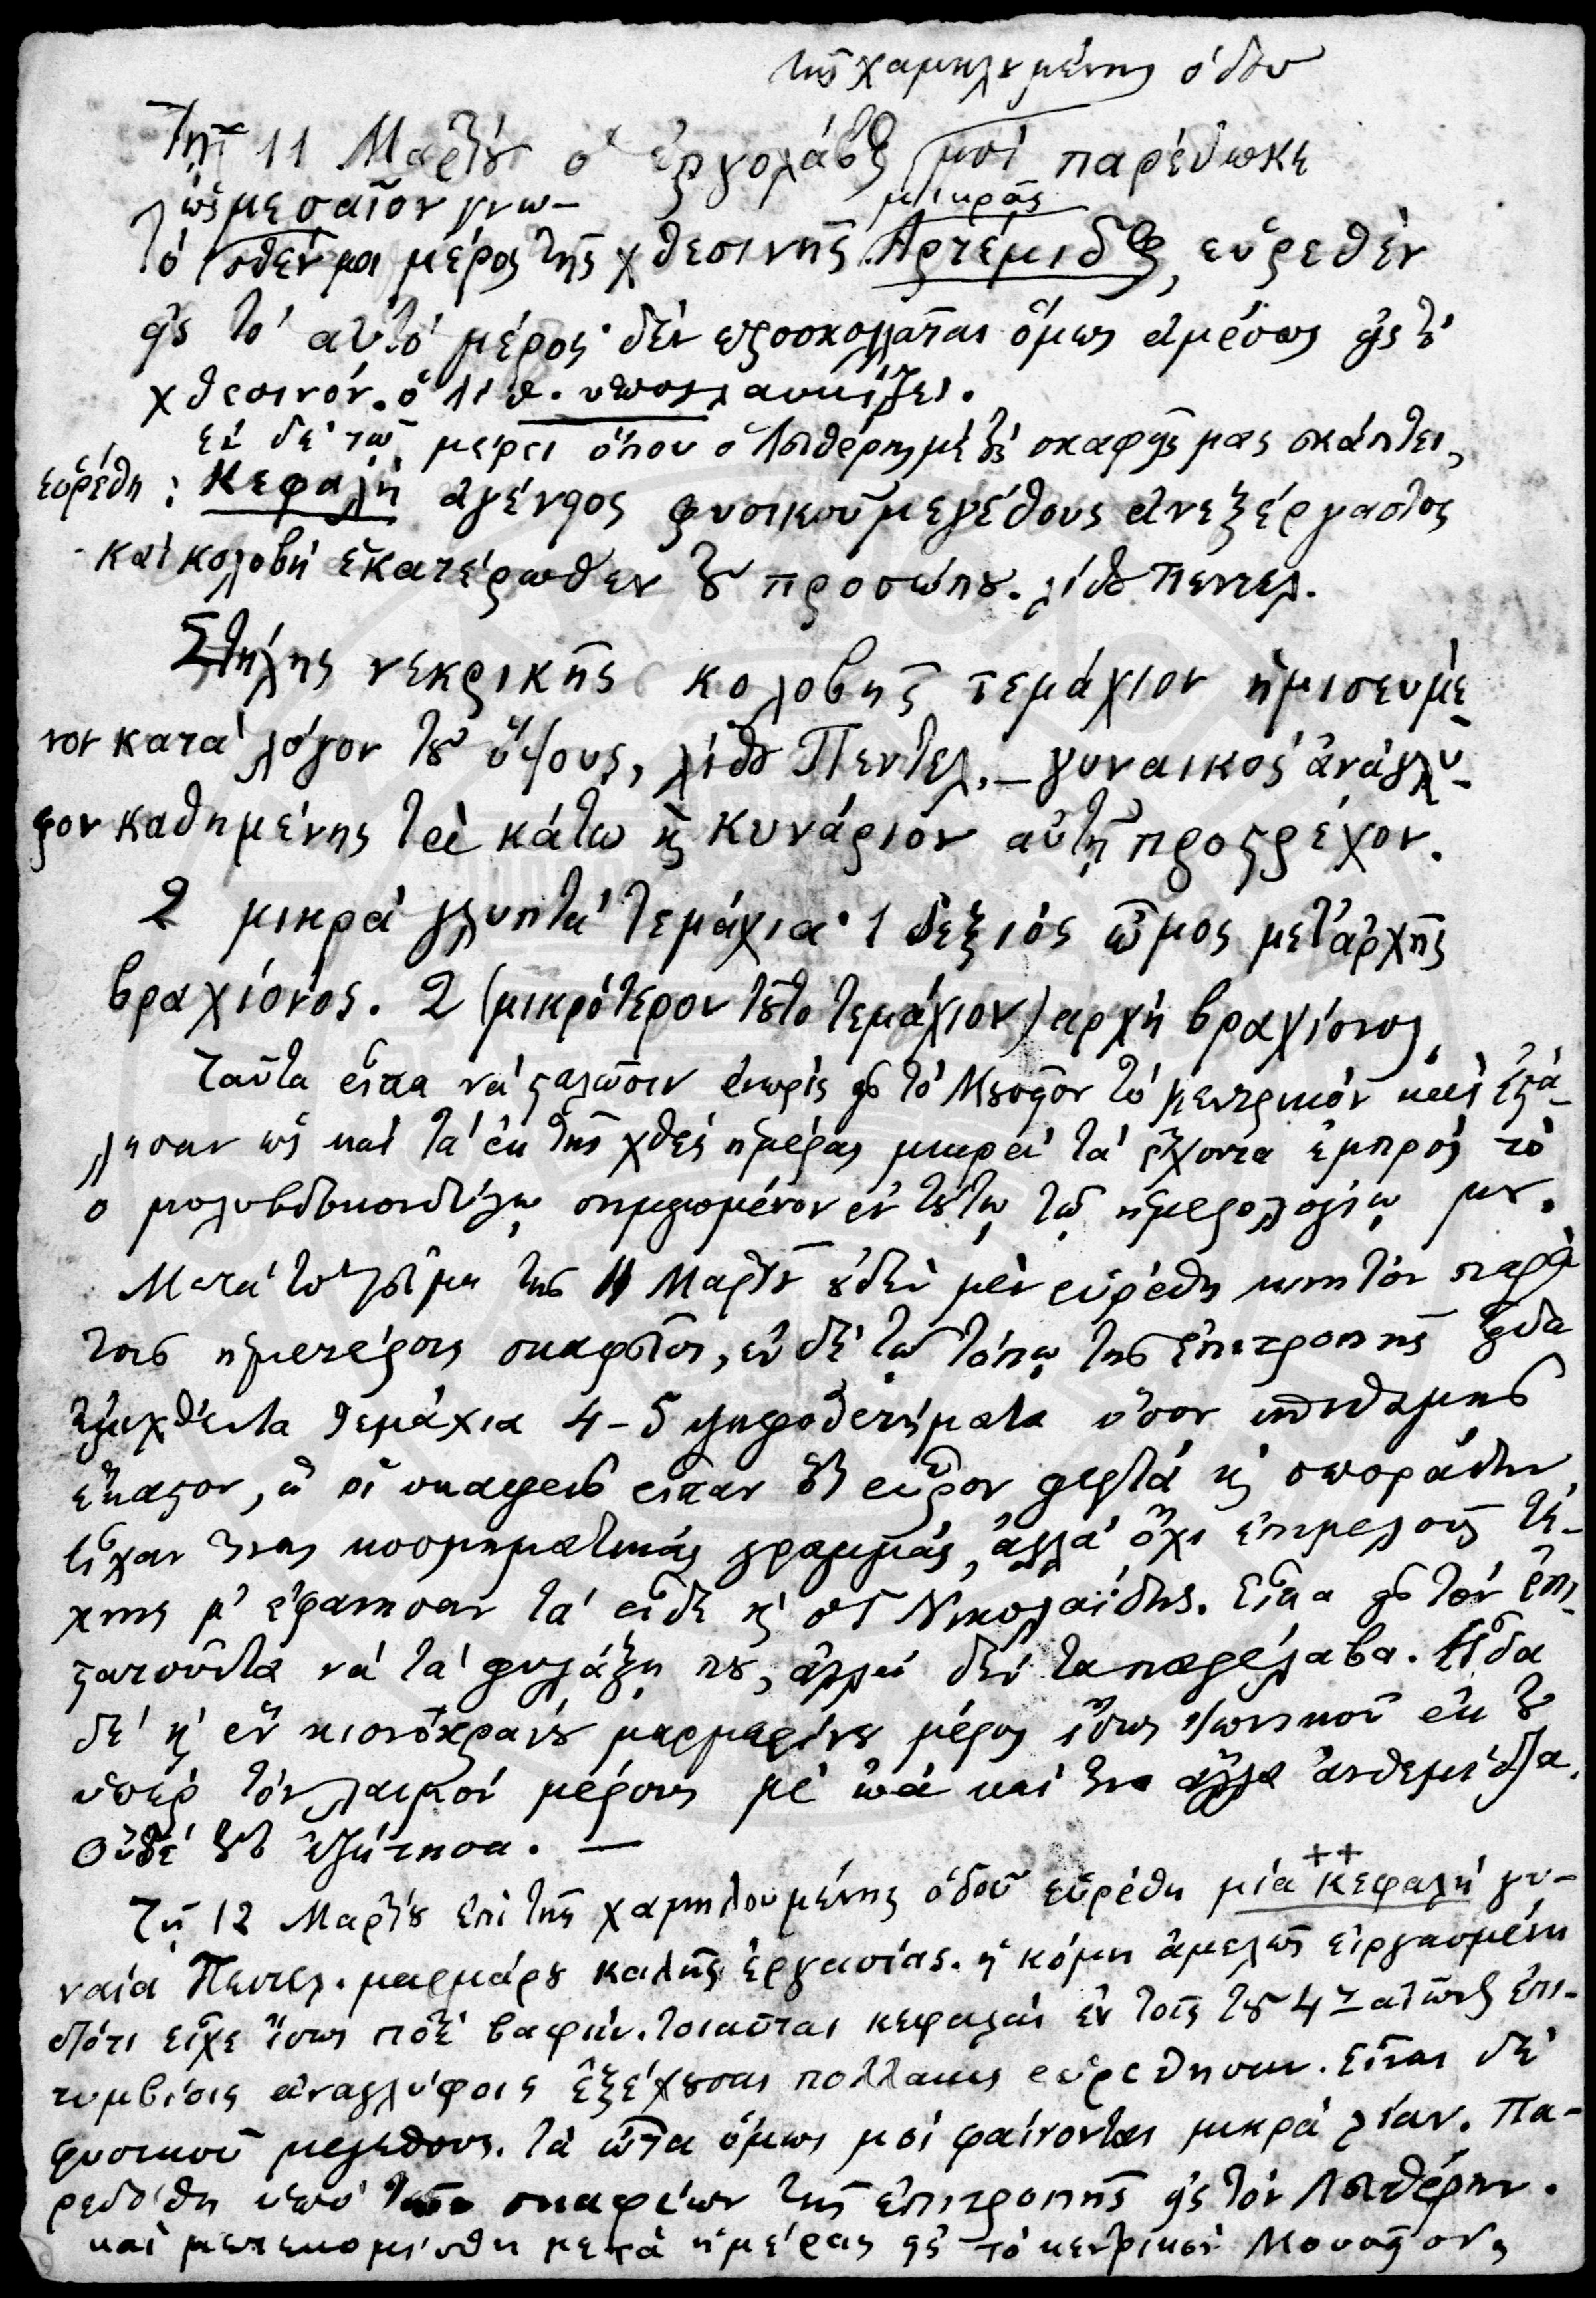 τῆς χαμηλουμένης ὁδοῦ
Τῇ 11 Μαρτίου ὁ ἐργολάβος μοὶ παρέδωκε
ὡς μεσαῖον γνω- μικρᾶς
τὸ σθέν μοι μέρος τῆς χθεσινῆς Ἀρτέμιδος, εὑρεθὲν
εἰς τὸ αὐτὸ μέρος· δὲν προσκολλᾶται ὅμως ἀμέσως εἰς τὸ
χθεσινόν. ὁ λίθ. ὑπογλαυκίζει.
ἐν δὲ τῷ μέρει ὅπου ὁ Λιθέρης μὲ τοὺς σκαφεῖς μας σκάπτει,
εὑρέθη : Κεφαλὴ ἀγένειος φυσικοῦ μεγέθους ἀνεξέργαστος
καὶ κολοβὴ ἑκατέρωθεν τοῦ προσώπου. λίθου Πεντελ.
Στήλης νεκρικῆς κολοβῆς τεμάχιον ἡμισευμέ-
νον κατὰ λόγον τοῦ ὕψους, λίθου Πεντελ. – γυναικὸς ἀνάγλυ-
φον καθημένης τὰ κάτω καὶ κυνάριον αὐτῇ προστρέχον.
2 μικρὰ γλυπτὰ τεμάχια· 1 δεξιὸς ὦμος μετ' ἀρχῆς
βραχίονος. 2 (μικρότερον τοῦτο τεμάχιον) ἀρχὴ βραχίονος,
Ταῦτα εἶπα νὰ σταλῶσιν ἐνωρὶς εἰς τὸ Μουσεῖον τὸ κεντρικὸν καὶ ἐστά-
λησαν ὡς καὶ τὰ ἐκ τῆς χθὲς ἡμέρας μικρὰ τὰ ἔχοντα ἐμπρὸς τὸ
ο μολυβδοκονδύλῳ σημειωμένον ἐν τούτῳ τῷ ἡμερολογίῳ μου.
Μετὰ τὸ γεῦμα τῆς 11 Μαρτίου οὐδὲν μὲν εὑρέθη κινητὸν παρὰ
τοῖς ἡμετέροις σκαφεῦσι, ἐν δὲ τῷ τόπῳ τῆς ἐπιτροπῆς εἶδα
ἐξαχθέντα τεμάχια 4-5 ψηφοθετήματα ὅσον σπιθαμῆς
ἕκαστον, ἃ οἱ σκαφεῖς εἶπαν ὅτι εὗρον χωστὰ καὶ σποράδην
εἶχαν τινας κοσμηματικὰς γραμμάς, ἀλλὰ ὄχι ἐπιμελοῦς τέ-
χνης μ' ἐφάνησαν τὰ εἶδε καὶ ὁ Γ Νικολαΐδης. Εἶπα εἰς τὸν ἐπι-
στατοῦντα νὰ τὰ φυλάξῃ που, ἀλλὰ δὲν τα παρέλαβα. Εἶδα
δὲ καὶ ἓν κιονοκράνου μαρμαρίνου μέρος ἴσως ἰωνικοῦ ἐκ τοῦ
ὑπὲρ τὸν λαιμὸν μέρους μὲ ὠὰ καὶ ἄλλα ἀνθεμιώδη.
Οὐδὲ ἐζήτησα. —
Τῇ 12 Μαρτίου ἐπὶ τῆς χαμηλουμένης ὁδοῦ εὑρέθη μία ++ κεφαλὴ γυ-
ναία Πεντελ. μαρμάρου καλῆς ἐργασίας. ἡ κόμη ἀμελῶς εἰργασμένη
διότι εἶχε ἴσως ποτὲ βαφήν. τοιαῦται κεφαλαὶ ἐν τοῖς τοῦ 4ου αἰῶνος ἐπι-
τυμβίοις ἀναγλύφοις ἐξέχουσαι πολλάκις εὑρέθησαν. Εἶναι δὲ
φυσικοῦ μεγέθους. τὰ ὦτα ὅμως μοὶ φαίνονται μικρὰ λίαν. Πα-
ρεδόθη ὑπὸ τῶν σκαφέων τῆς ἐπιτροπῆς εἰς τὸν Λιθέρην.
καὶ μετεκομίσθη μετὰ ἡμέρας εἰς τὸ κεντρικὸν Μουσεῖον,